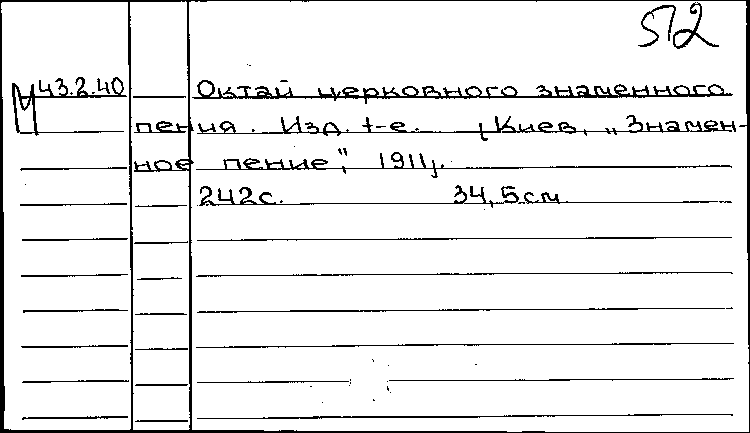 512
М 43.2.40 Октай церковного знаменного
пения. Изд. 1-е. [Киев, „Знамен-
ное пение", 1911].
242с. 34,5см